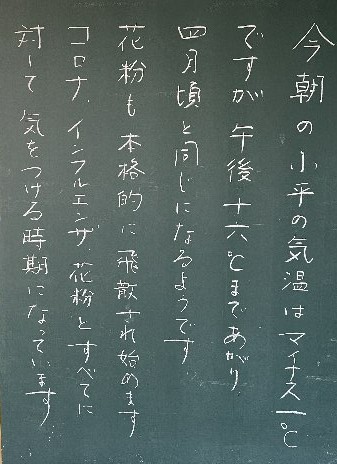 今朝の小平の気温はマイナス一℃
ですが午後十六℃まであがり
四月頃と同じになるようです
花粉も本格的に飛散され始めます
コロナ、インフルエンザ、花粉とすべてに
対して気をつける時期になっています